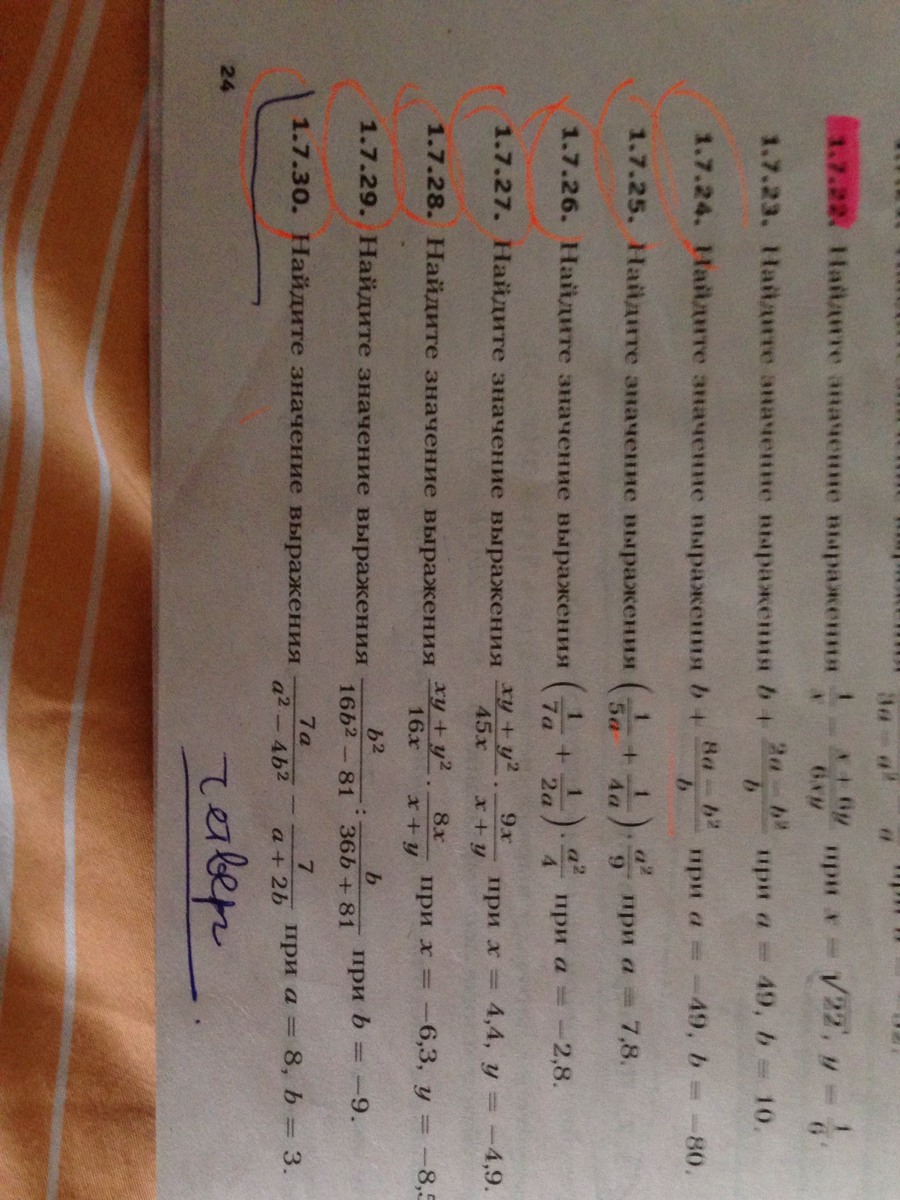 1.7.22. Найдите значение выражения 1/x − (x + 6y)/(6xy) при x = √22, y = 1/6.
1.7.23. Найдите значение выражения b + (2a − b²)/b при a = 49, b = 10.
1.7.24. Найдите значение выражения b + (8a − b²)/b при a = −49, b = −80.
1.7.25. Найдите значение выражения (1/(5a) + 1/(4a)) · a²/9 при a = 7,8.
1.7.26. Найдите значение выражения (1/(7a) + 1/(2a)) · a²/4 при a = −2,8.
1.7.27. Найдите значение выражения (xy + y²)/(45x) · 9x/(x + y) при x = 4,4, y = −4,9.
1.7.28. Найдите значение выражения (xy + y²)/(16x) · 8x/(x + y) при x = −6,3, y = −8,
1.7.29. Найдите значение выражения b²/(16b² − 81) : b/(36b + 81) при b = −9.
1.7.30. Найдите значение выражения 7a/(a² − 4b²) − 7/(a + 2b) при a = 8, b = 3.
четверг
24